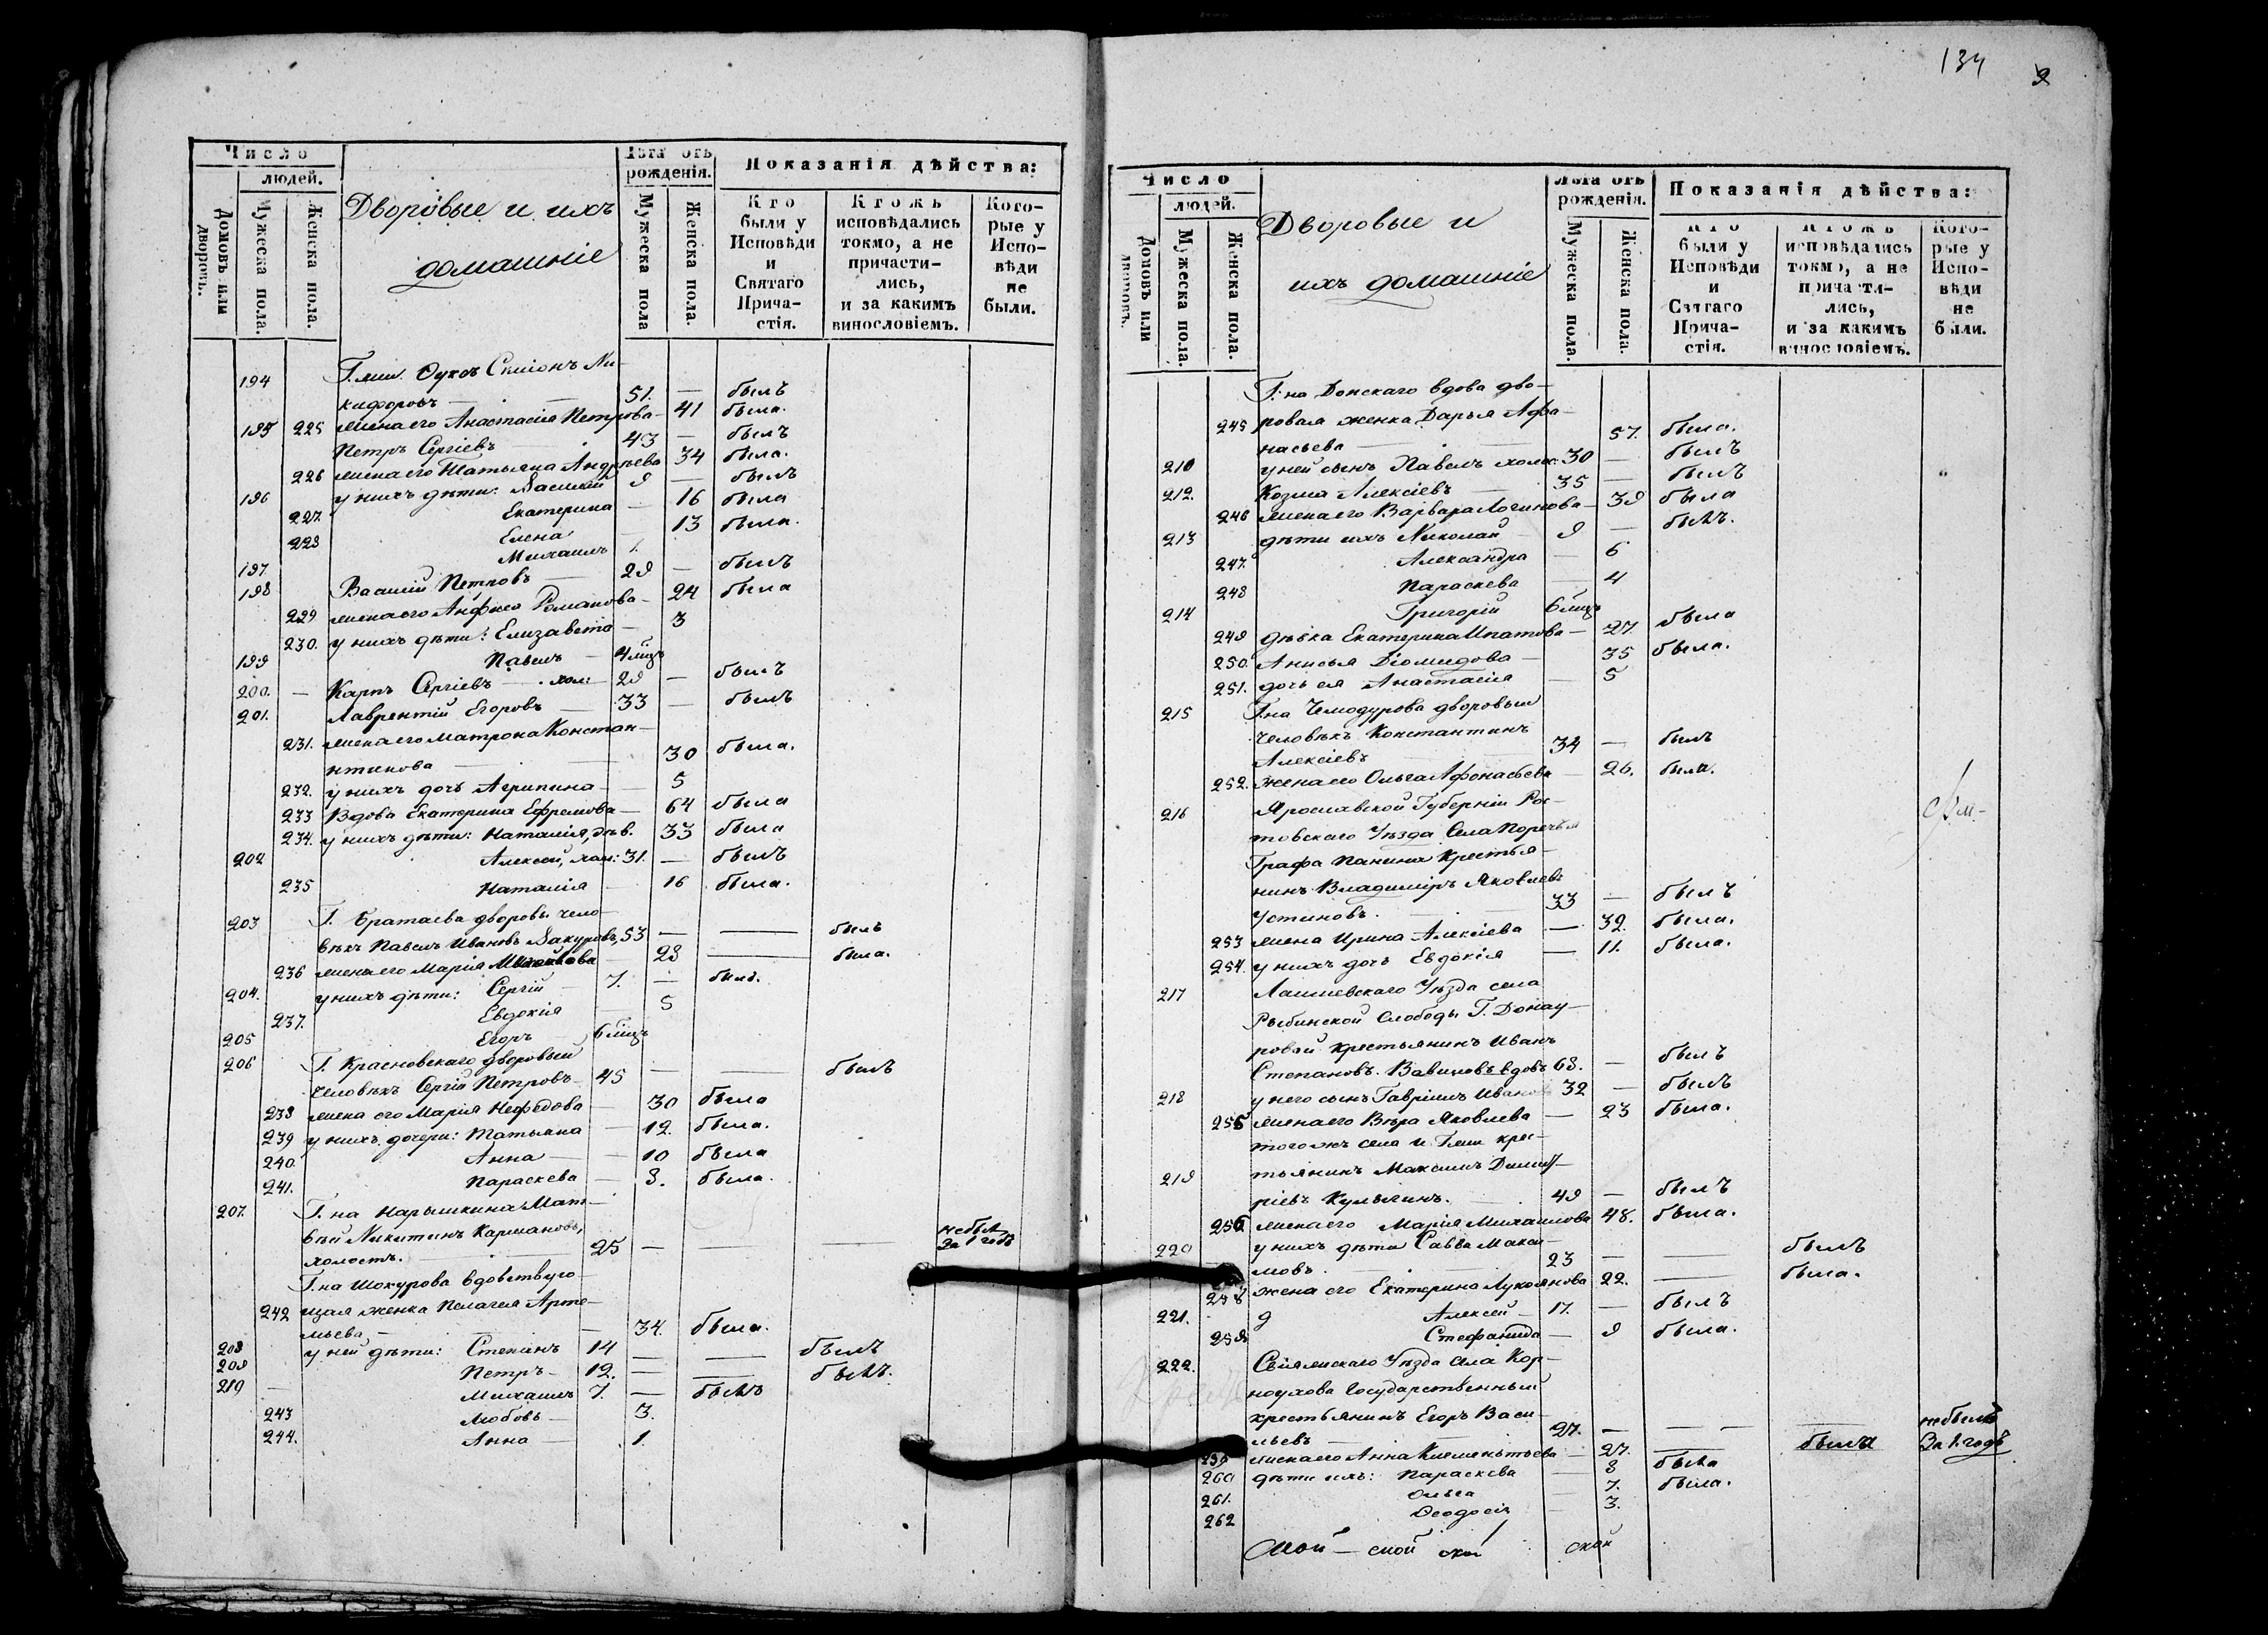 Число
людей.
Домовъ или дворовъ.
Мужеска пола.
Женска пола.
Дворовые и ихъ
домашніе
Лѣта отъ
рожденія.
Мужеска пола
Женска пола.
Показанія дѣйства:
Кто были у Исповѣди и Святаго Прича-стія.
Ктожъ исповѣдались токмо, а не причасти-лись, и за какимъ винословіемъ.
Кото-рые у Испо-вѣди не были.
194 Ни-
кифоровъ — 51. — былъ
225 жена его Анастасія Петрова — 41 была.
195 Петръ Сергіевъ 43 — былъ
226 жена его Татьяна Андреева 34 была.
196 у нихъ дѣти: Василій 9 — былъ
227. Екатерина — 16 была
228 Елена — 13 была.
197 Михаилъ 1.
198 Василій Петровъ — 29 — былъ
229 жена его Анфиса Романова — 24 была
230. у нихъ дѣти: Елизавета — 3
199 Павелъ — 4 мцъ
200. — Карпъ Сергіевъ — хол: 29 — былъ
201. Лаврентій Егоровъ — 33 — былъ
231. жена его Матрона Констан-
нтинова — 30 была.
232. у нихъ дочь Агрипина — 5
233 Вдова Екатерина Ефремова — 64 была
234. у нихъ дѣти: Наталія, дѣв. 33 была
202 Алексѣй, хол: 31. — былъ
235 Наталія — 16 была.
203 Г. Братаева дворовы чело-
вѣкъ Павелъ Ивановъ 53 — — былъ
236 жена его Марія — 28 — была.
204. у нихъ дѣти: Сергій — 7. — былъ.
237. Евдокія — 5
205 Егоръ 6 мцъ
206 Г. Красновскаго дворовый
человѣкъ Сергій Петровъ 45 — — былъ
238 жена его Марія Нефедова — 30 была
239 у нихъ дочери: Татьяна — 12. была.
240. Анна — 10 была
241. Параскева — 8. была.
207. Г. на Нарышкина Мат-
вѣй Никитинъ Кармановъ, не былъ
холостъ. — 25 — — — За 1 годъ
Г. на Шокурова вдовствую-
242 щая женка Пелагея Арте-
мьева, — 34. была.
208 у ней дѣти: Степанъ 14 — — былъ
209 Петръ — 12. — — былъ.
210 — Михаилъ 7. — былъ
243 Любовь — 3.
244. Анна — 1.
134
2
Число
людей.
Домовъ или дворовъ.
Мужеска пола.
Женска пола.
Дворовые и
ихъ домашніе
Лѣта отъ
рожденія.
Мужеска пола.
Женска пола.
Показанія дѣйства:
Кто были у Исповѣди и Святаго Прича-стія.
Ктожъ исповѣдались токмо, а не причасти-лись, и за какимъ винословіемъ.
Кото-рые у Испо-вѣди не были.
Г. на Донскаго вдова дво-
245 ровая женка Дарья Афа-
насьева — 57. была.
210 у ней сынъ Павелъ холос: 30 — былъ
212. Козма Алексіевъ — 35 — былъ
246 жена его Варвара Логинова — 39 была
213 дѣти ихъ Николай 9 — былъ.
247. Александра — 6
248 Параскева — 4
214 Григорій 6 мцъ
249 дѣвка Екатерина Ипатова — 27. была
250. Анисья Діомидова — 35 была.
251. дочь ея Анастасія — 5
215 Г. на Чемодурова дворовый
человѣкъ Константинъ
Алексіевъ — 34 — былъ
252. жена его Ольга Афонасьева — 26. была.
216 Ярославской Губерніи Рос-
товскаго Уѣзда Села Поречья
Графа Панина крестья-
нинъ Владиміръ Яковлевъ
Устиновъ. — 33 — былъ
253 жена Ирина Алексіева — 32. была.
254. у нихъ дочь Евдокія — 11. была.
217 Лаишевскаго Уѣзда села
Рыбинской Слободы Г. Донау-
ровой крестьянинъ Иванъ
Степановъ. вдовъ 68. — былъ
218 у него сынъ Гавріилъ Ивановъ 32 — былъ
255 жена его Вѣра Яковлева — 23 была.
того жъ села и Гжи крес-
219 тьянинъ Максимъ Димит-
ріевъ Кулыгинъ. 49 — былъ
256 жена его Марія Михаилова 48. была.
220 у нихъ дѣти Савва Макси-
мовъ. — 23 — — былъ
жена его Екатерина Лукоянова 22. — была.
221. Алексѣй — 17. — былъ
258 Стефанида — 9 была.
222. Свіяжскаго Уѣзда села Кор-
ноухова Государственный
крестьянинъ Егоръ Васи- не былъ
льевъ — 27. — — — За 1. годъ
259 жена его Анна Климентьева — 27. — была
260 дѣти ихъ: Параскева — 8 была
261. Ольга — 7. была.
262 Ѳеодосія — 3.